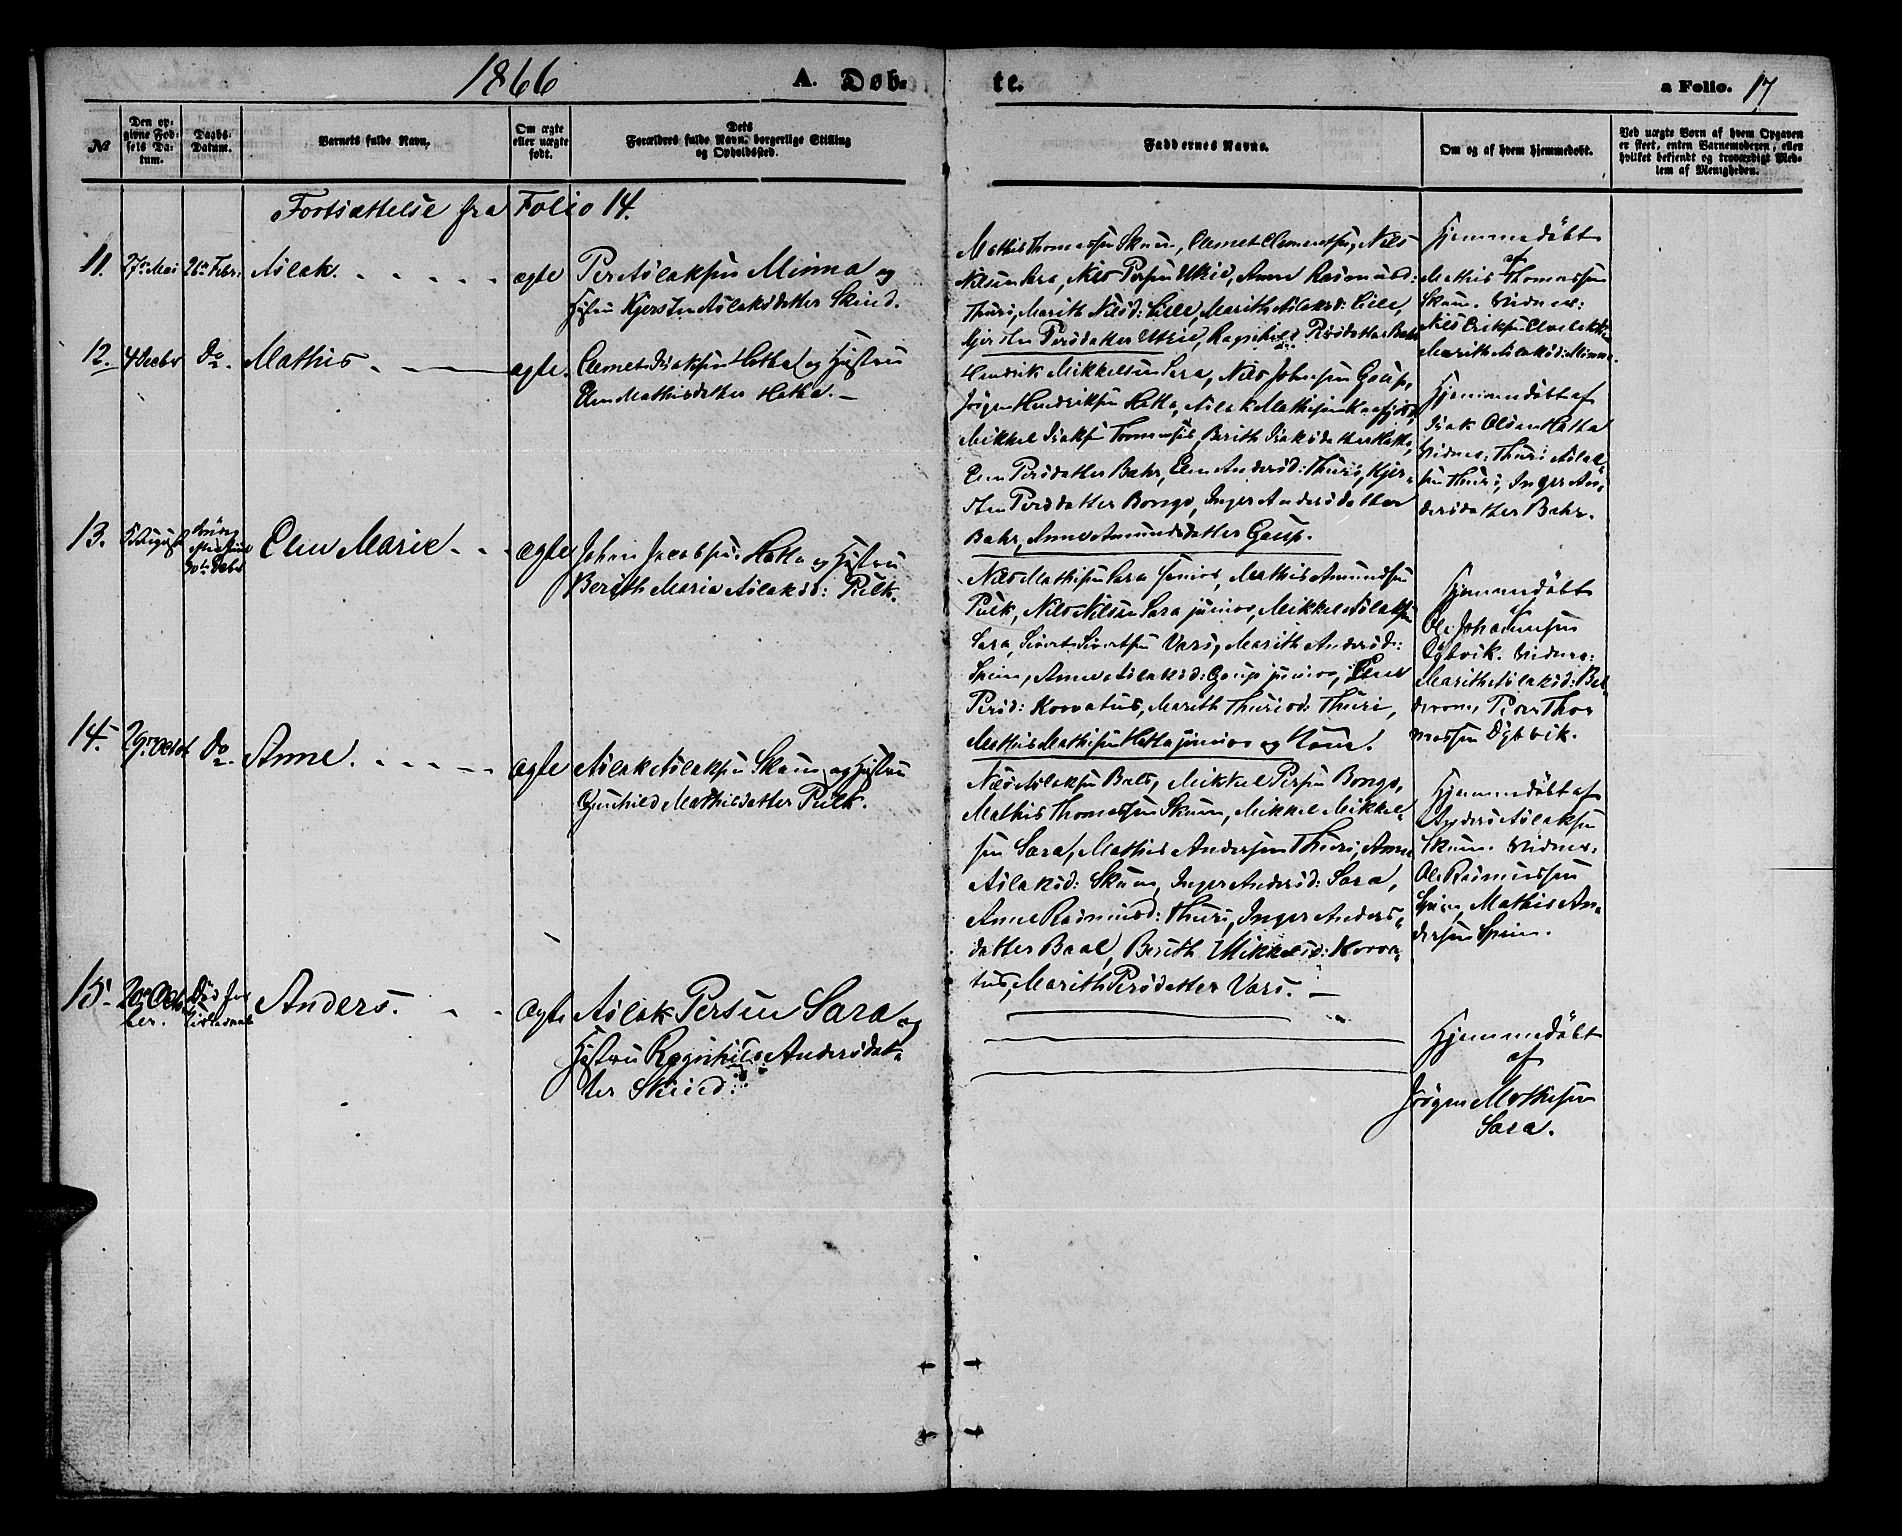 1866
A. Døb-
te.
a Folio. 17
№
Den op-
givne Fød-
sels Da-
tum.
Daabs-
Datum.
Barnets fulde Navn.
Om ægte
eller uægte
født.
Dets
Forældres fulde Navn, borgerlige Stilling
og Opholdssted.
Faddernes Navne.
Om og af hvem hjemmedøbt.
Ved uægte Børn af hvem Opgaven
er skeet, enten Barnemoderen, eller
hvilket bekjendt og troværdigt Med-
lem af Menigheden.
Fortsættelse fra Folio 14.
11. 27de Mai 26de Febr: Aslak. ægte Per Aslaksen Minna og
Hustru Kjersten Aslaksdatter Skind.
Mathis Thomassen Skum, Clemet Clemetsen, Nils
Nilsen Sara, Nils Persen Utsie, Anne Rasmusd:
Thuri, Marith Nilsd: Lille, Marith Aslaksd: Lille,
Kjersten Persdatter Utsie, Ragnhild Persdatter Bahr
Hjemmedøbt
af
Mathis Thomassen
Skum. Vidner:
Nils Eriksen
Marith Aslaksd: Minna.
12. 4 Decbr Do. Mathis ægte. Clemet Isaksen Hætta og Hustru
Elen Mathisdatter Hætta.
Hendrik Mikkelsen Sara, Nils Johnsen Gaup,
Jørgen Hendriksen Hætta, Aslak Mathisen Kaafjord,
Mikkel Isaksen Thomassen, Berith Isaksdatter Hætta,
Elen Persdatter Bahr, Elen Andersd: Thuri, Kjer-
sten Persdatter Bongo, Inger Andersdatter
Bahr, Anne Amundsdatter Gaup.
Hjemmedøbt af
Isak Olsen Hætta
Vidner: Thuri Aslak-
sen Thuri, Inger An-
dersdatter Bahr.
13. 5 August Elen Marie ægte John Jacobsen Hætta og Hustru
Berith Maria Aslaksd: Pulk.
Nils Mathisen Sara senior, Mathis Amundsen
Pulk, Nils Nilsen Sara junior, Mikkel Aslaksen
Sara, Sivert Sivertsen Vars, Marith Andersd:
Spein, Anne Aslaksd: Gaup junior, Elen
Persd: Korvatus, Marith Thurisd: Thuri,
Mathis Mathisen Hætta junior og Kone.
Hjemmedøbt
af
Ole Johannesen
Dybvik. Vidner:
Marith Aslaksd:
Peder Tho-
massen Dybvik.
14. 29de Octob Do. Anne. ægte Aslak Aslaksen Skum og Hustru
Gunhild Mathisdatter Pulk.
Nils Aslaksen Bals, Mikkel Persen Bongo,
Mathis Thomassen Skum, Mikkel Mikkel-
sen Sara, Mathis Andersen Thuri, Anne
Aslaksd: Skum, Inger Andersd: Sara,
Anne Rasmusd: Thuri, Inger Anders-
datter Baal, Berith Mikkelsd: Korva-
tus, Marith Persdatter Vars.
Hjemmedøbt af
Anders Aslaksen
Skum. Vidner:
Ole Rasmussen
Spein, Mathis An-
dersen Spein.
15. 20de Octo-
ber. Død før
Anders. ægte Aslak Persen Sara og
Hustru Ragnhild Andersdat-
ter Skind.
Hjemmedøbt
af
Jørgen Mathisen
Sara.